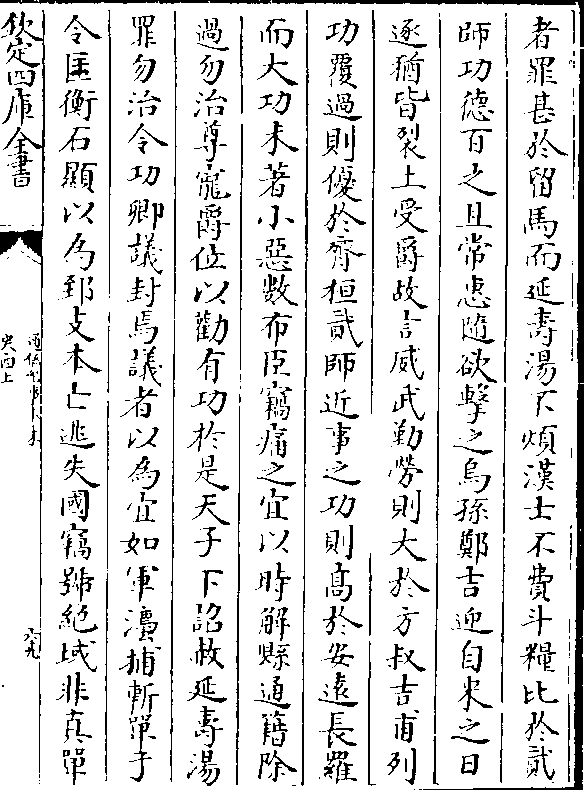 者罪甚於留馬而延壽湯不煩漢士不費斗糧比於貳
師功德百之且常惠隨欲擊之烏孫鄭吉迎自来之日
逐猶皆裂土受爵故言威武勤勞則大於方叔吉甫列
功覆過則優於齊桓貳師近事之功則髙於安逺長羅
而大功未著小惡數布臣竊痛之宜以時解縣通籍除
過勿治尊寵爵位以勸有功於是天子下詔赦延壽湯
罪勿治令公卿議封焉議者以為宜如軍法捕斬單于
令匡衡石顯以為郅支本亡逃失國竊號絶域非真單
欽定四庫全書